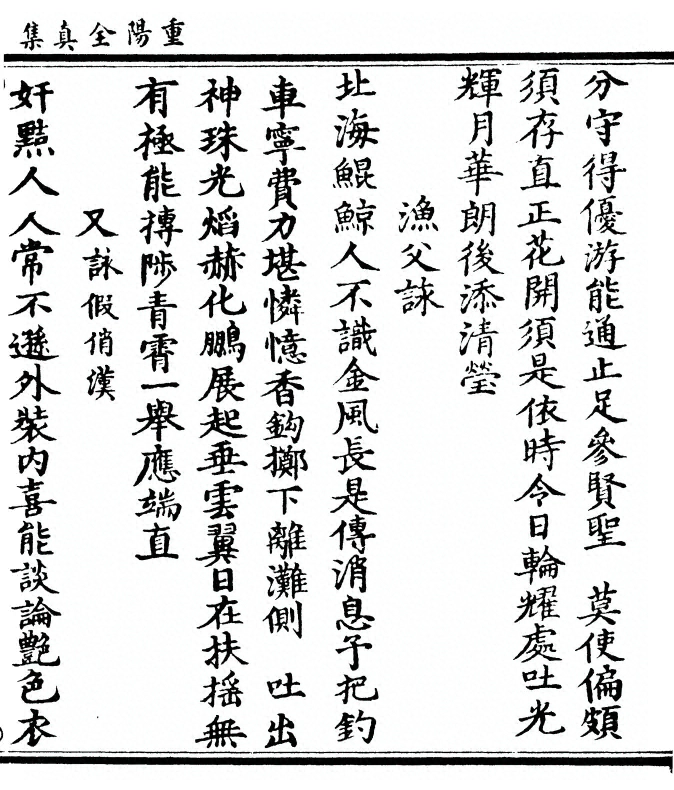 重陽全真集
分守得優游能通止足參賢聖　莫使偏頗
須存直正花開須是依時令日輪耀處吐光
輝月華朗後添清瑩
漁父詠
北海鯤鯨人不識金風長是傳消息予把釣
車寧費力堪憐憶香鈎擲下離灘側　吐出
神珠光熖赫化鵬展起垂雲翼日在扶搖無
有極能摶陟青霄一舉應端直
又詠假俏漢
奸黠人人常不遜外裝內喜能談論艷色衣